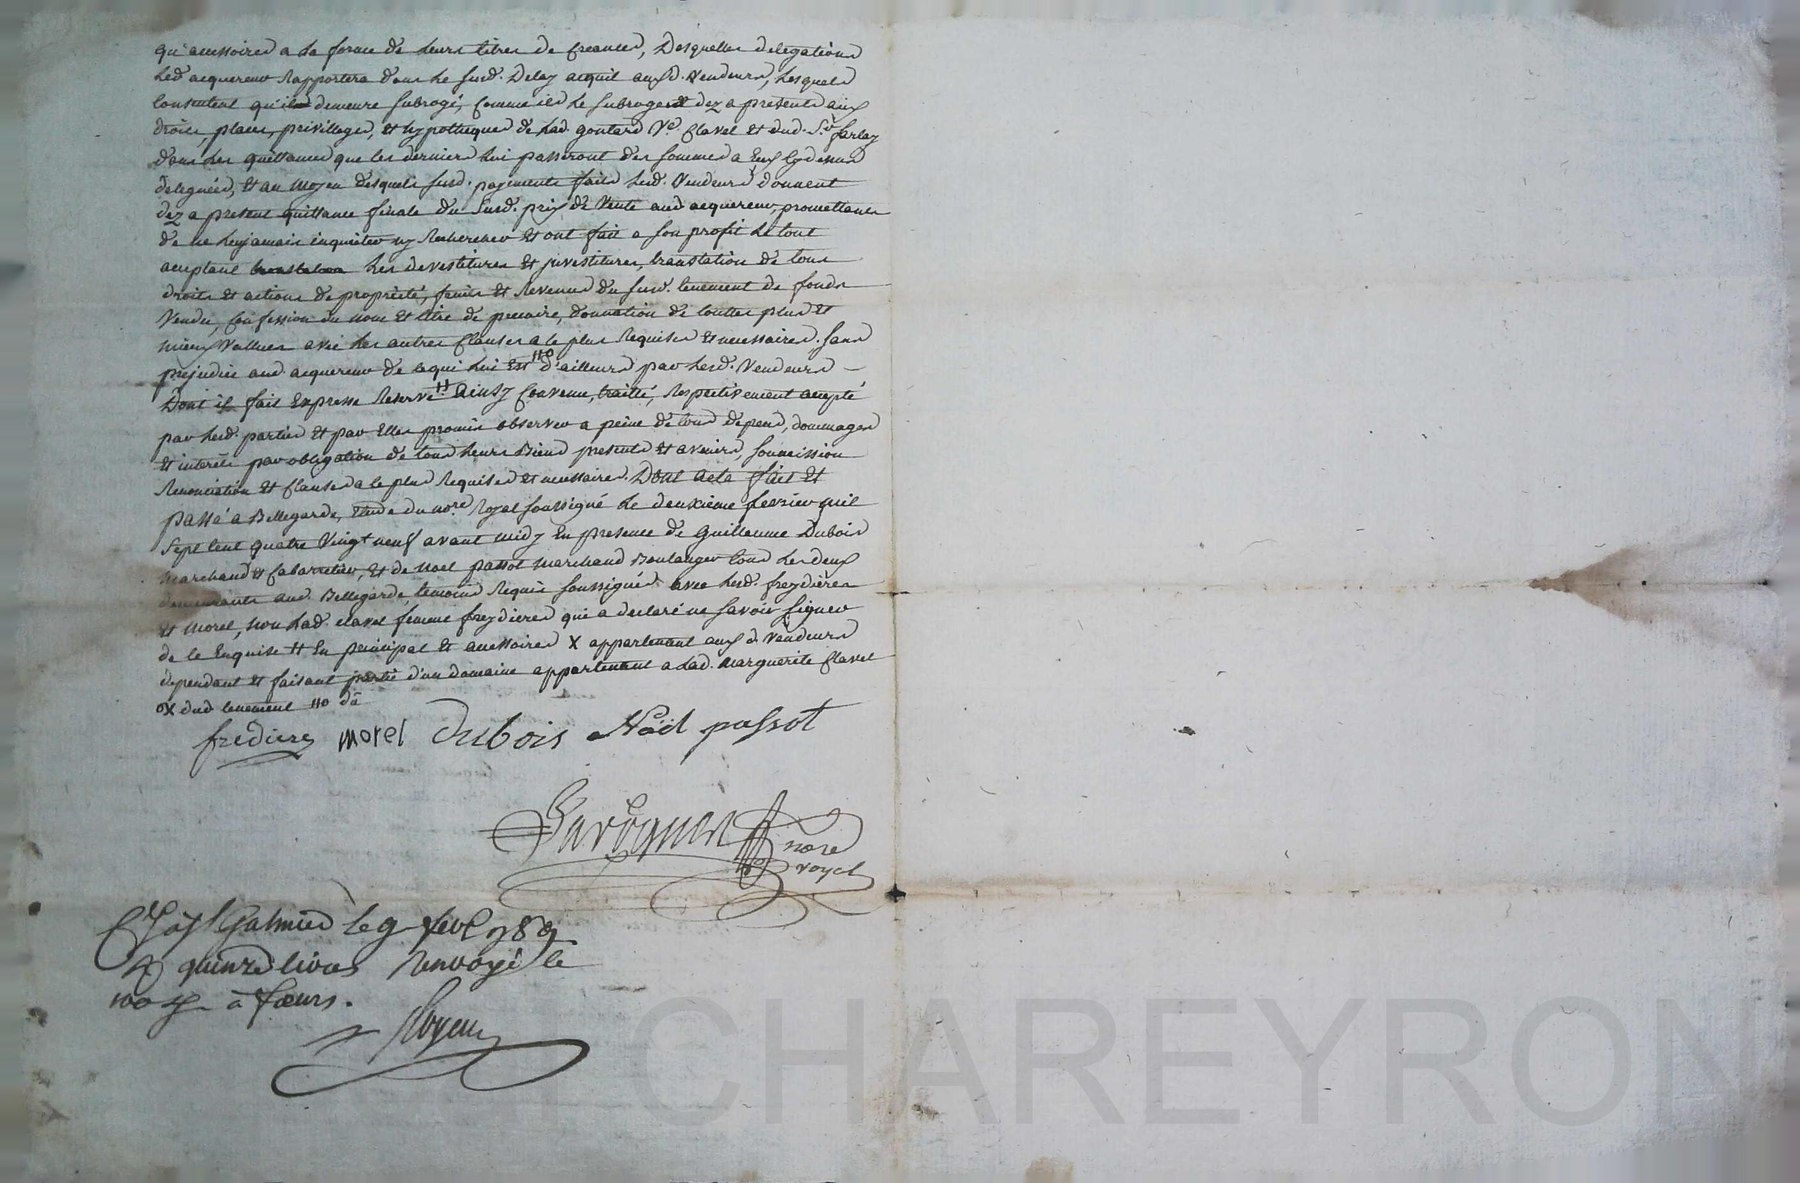 qu'accessoires a la forme de leurs titres de creances, Desquelles delegations
Led. acquereur Rapportera dans le susd. Delay acquit auxd. Vendeurs, Lesquels
Consentent qu'il demeure subrogé, comme ils le subrogent dez a présents aux
droits, places, privilleges, et hypotteques de Lad. goutard Ve. Clavel et dud. Sr. farlay
dans les quittances que les derniers lui passeront des sommes a Eux cy dessus
deleguées, et au moyen desquels susd. payements faits Lesd. Vendeurs donnent
dez a present quittance finale du susd. prix de Vente aud. acquereur, promettants
de ne Lenjamais inquiéter ny Rechercher et ont fait a son profit le tout
acceptant les devestitures et jnvestitures, translation de tous
droits et actions de propriété, fruits et Revenus du susd. tenement de fonds
Vendu, Confession du nom et titre de precaire, donnation de touttes plus et
mieux Vallues avec les autres Clauses a le plus Requises et necessaires. sans
prejudice aud. acquereur de ce qui lui Est 110 d'ailleurs par Lesd. Vendeurs —
Dont il fait Expresse Reserve # ainsy Convenu, traitté, Respectivement accepté
par Lesd. parties et par Elles promis observer a peine de tous depens, dommages
et interêts par obligation de tous leurs Biens presents et avenirs, soumission
Renonciation et clauses a le plus Requises et necessaires. Dont acte fait et
passé a Bellegarde, Etude du nore. Royal soussigné Le deuxieme fevrier mil
sept cent quatre Vingt neuf avant midy En presence de Guilleaume Dubois
Marchand et Cabarretier, et de Noel passot marchand Boulanger tous les deux
demeurants aud. Bellegarde, temoins Requis soussignés avec Lesd. freydières
et Morel, non Lad. clavel femme freydieres qui a declaré ne savoir signer
de ce Enquise # En principal et accessoires X appartenant aux d. Vendeurs
dependant et faisant partie d'un domaine appartenant a Lad. Marguerite Clavel
oX dud tenement 110 dû
fredieres morel Dubois Noël passot
nore
royal
St Galmier le 9 fevr. 1789
quinze livres renvoyé le
100e à feurs.
CHAREYRON